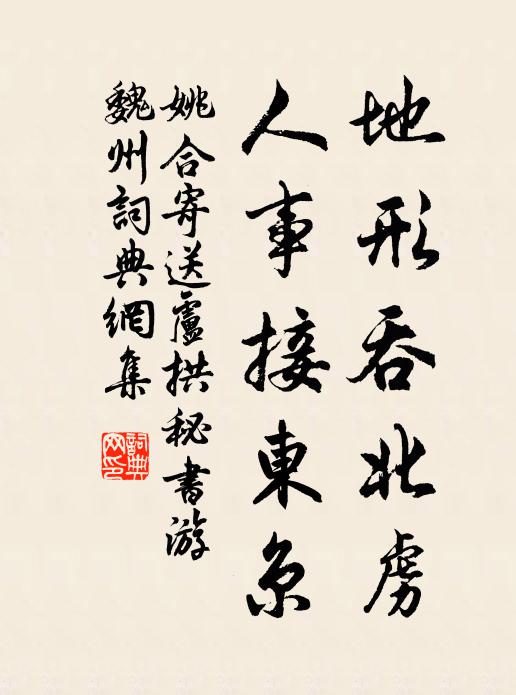 地形吞北虜
人事接東京
姚合寄送盧拱秘書游
魏州詞典網集
詞典網印